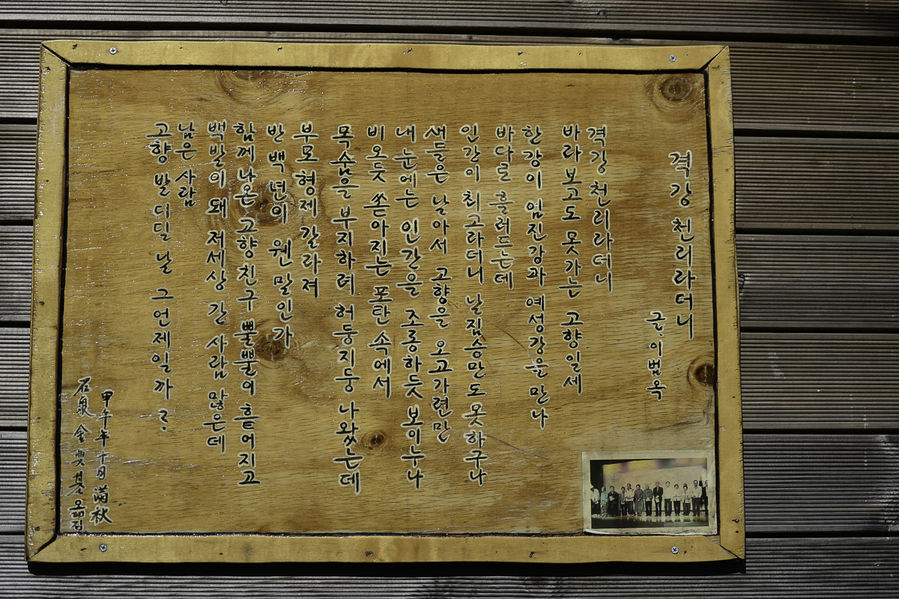 격강 천리라더니
글 이범옥
격강 천리라더니
바라 보고도 못가는 고향일세
한강이 임진강과 예성강을 만나
바다로 흘러드는데
인간이 최고라더니 날짐승만도 못하구나
새들은 날아서 고향을 오고가련만
내 눈에는 인간을 조롱하듯 보이누나
비 오듯 쏟아지는 포탄 속에서
목숨을 부지하려 허둥지둥 나왔는데
부모 형제 갈라져
반 백년이 웬 말인가
함께 나온 고향친구 뿔뿔이 흩어지고
백발이 돼 저세상 간 사람 많은데
남은 사람
고향 발 디딜 날 그 언제일까?
甲午年 十月 滿秋
石泉 金 基 옮김